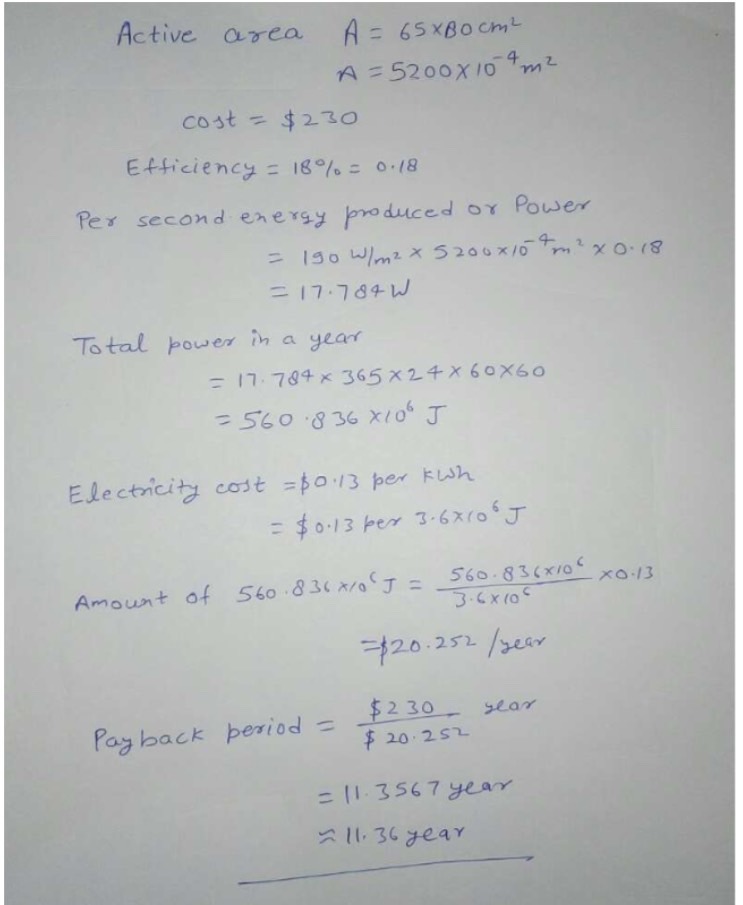 Active area A = 65×80 cm²
A = 5200×10⁻⁴ m²
cost = $230
Efficiency = 18% = 0.18
Per second energy produced or Power
= 190 W/m² × 5200×10⁻⁴ m² × 0.18
= 17.784 W
Total power in a year
= 17.784 × 365 × 24 × 60×60
= 560.836 ×10⁶ J
Electricity cost = $0.13 per kwh
= $0.13 per 3.6×10⁶ J
Amount of 560.836 ×10⁶ J = 560.836×10⁶ / 3.6×10⁶ ×0.13
= $20.252 /year
Payback period = $230 / $20.252 year
= 11.3567 year
≈ 11.36 year